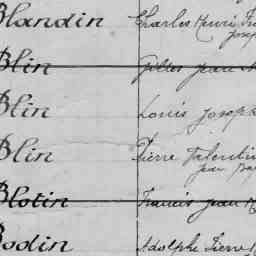 Blandin Charles Henri
Joseph
Blin Gilles Jean
Blin Louis Joseph
Blin Pierre Valentin
Jean Bap
Blotin Francis Jean M
Bodin Adolphe Pierre